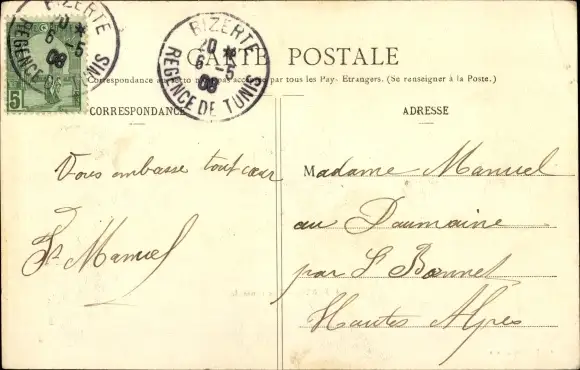 BIZERTE
20 *
6 - 5
08
REGENCE DE TUNIS
BIZERTE
20 *
6 - 5
08
REGENCE DE TUNIS
5
CARTE POSTALE
Correspondance au recto n'est pas acceptée par tous les Pays Etrangers. (Se renseigner à la Poste.)
CORRESPONDANCE
ADRESSE
Vous embasse tout cœur
Manuel
Madame Manuel
au Daumaine
par St Bonnet
Hautes Alpes